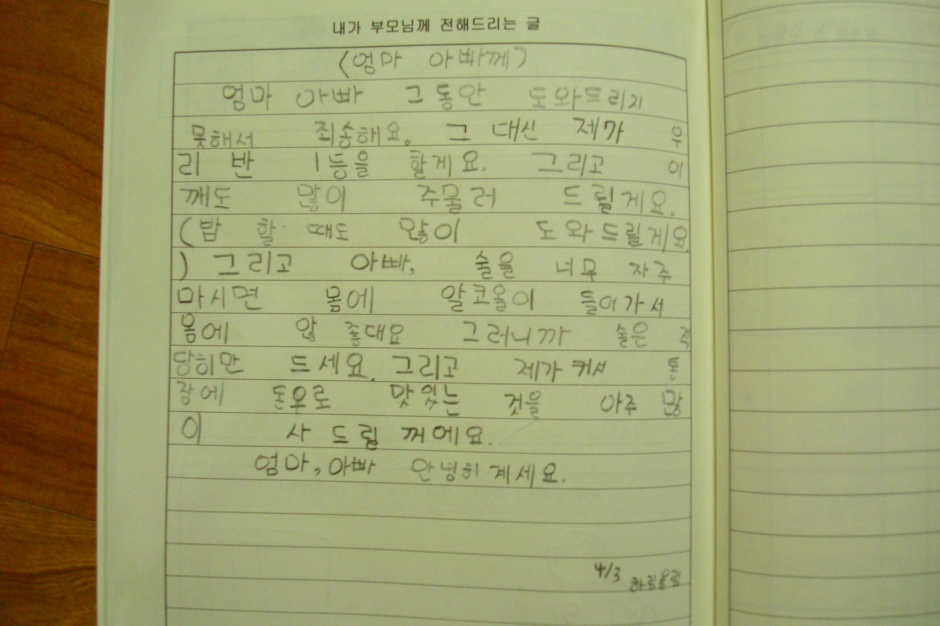 내가 부모님께 전해드리는 글
<엄마 아빠께>
엄마 아빠 그동안 도와드리기
못해서 죄송해요. 그 대신 제가 우
리 반 1등을 할게요. 그리고 어
깨도 많이 주물러 드릴게요.
(밥 할 때도 많이 도와드릴게요
) 그리고 아빠, 술을 너무 자주
마시면 몸에 알코올이 들어가서
몸에 않 좋대요 그러니까 술은 적
당히만 드세요. 그리고 제가 커서 통
장에 돈우로 맛있는 것을 아주 많
이 사 드릴 꺼에요.
엄마, 아빠 안녕히 계세요.
4/3